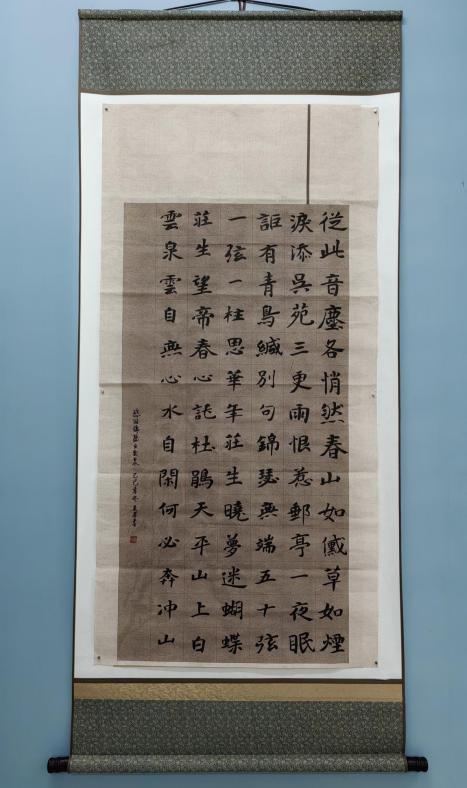 從此音塵各悄然春山如黛草如煙
淚添吳苑三更雨恨惹郵亭一夜眠
詎有青鳥緘別句錦瑟無端五十弦
一弦一柱思華年莊生曉夢迷蝴蝶
莊生望帝春心託杜鵑天平山上白
雲泉雲自無心水自閑何必奔冲山